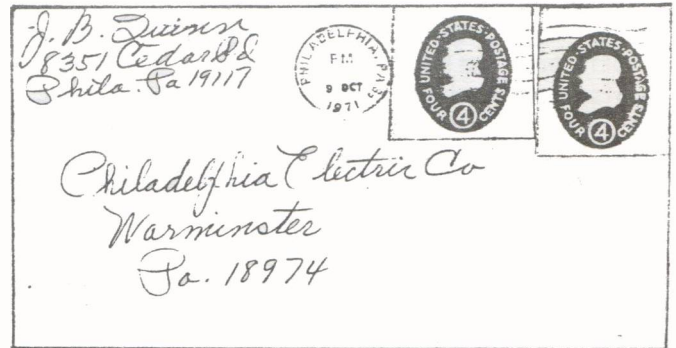 J. B. Quinn
8351 Cedar Rd
Phila. Pa 19117
PHILADELPHIA, PA
PM
9 OCT
1971
UNITED·STATES·POSTAGE
FOUR 4 CENTS
UNITED·STATES·POSTAGE
FOUR 4 CENTS
Philadelphia Electric Co
Warminster
Pa. 18974